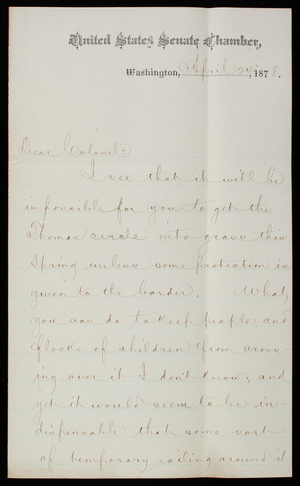 United States Senate Chamber,
Washington, April 24 1878.
Dear Colonel:
I see that it will be
impossible for you to get the
Thomas circle into grass this
Spring unless some protection is
given to the border. What
you can do to keep people and
flocks of children from cross-
ing over it I don't know; and
yet it would seem to be in-
dispensable that some sort
of temporary railing around it